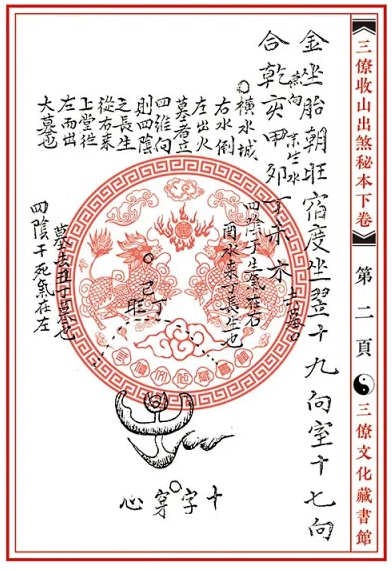 三僚收山出煞秘本下卷
第二頁
三僚文化藏書館
金坐胎朝旺宿度坐翌十九向室十七向
合乾亥甲卯丁未木
横水城
右水倒
左出火
墓者立
四維向
則四陰
之長生
從右来
上堂從
左而出
大墓也
四陰丁生氣在右
酉水来丁長生也
己丁
旺
墓去丑丁墓也
四陰干死氣在左
十字穿心